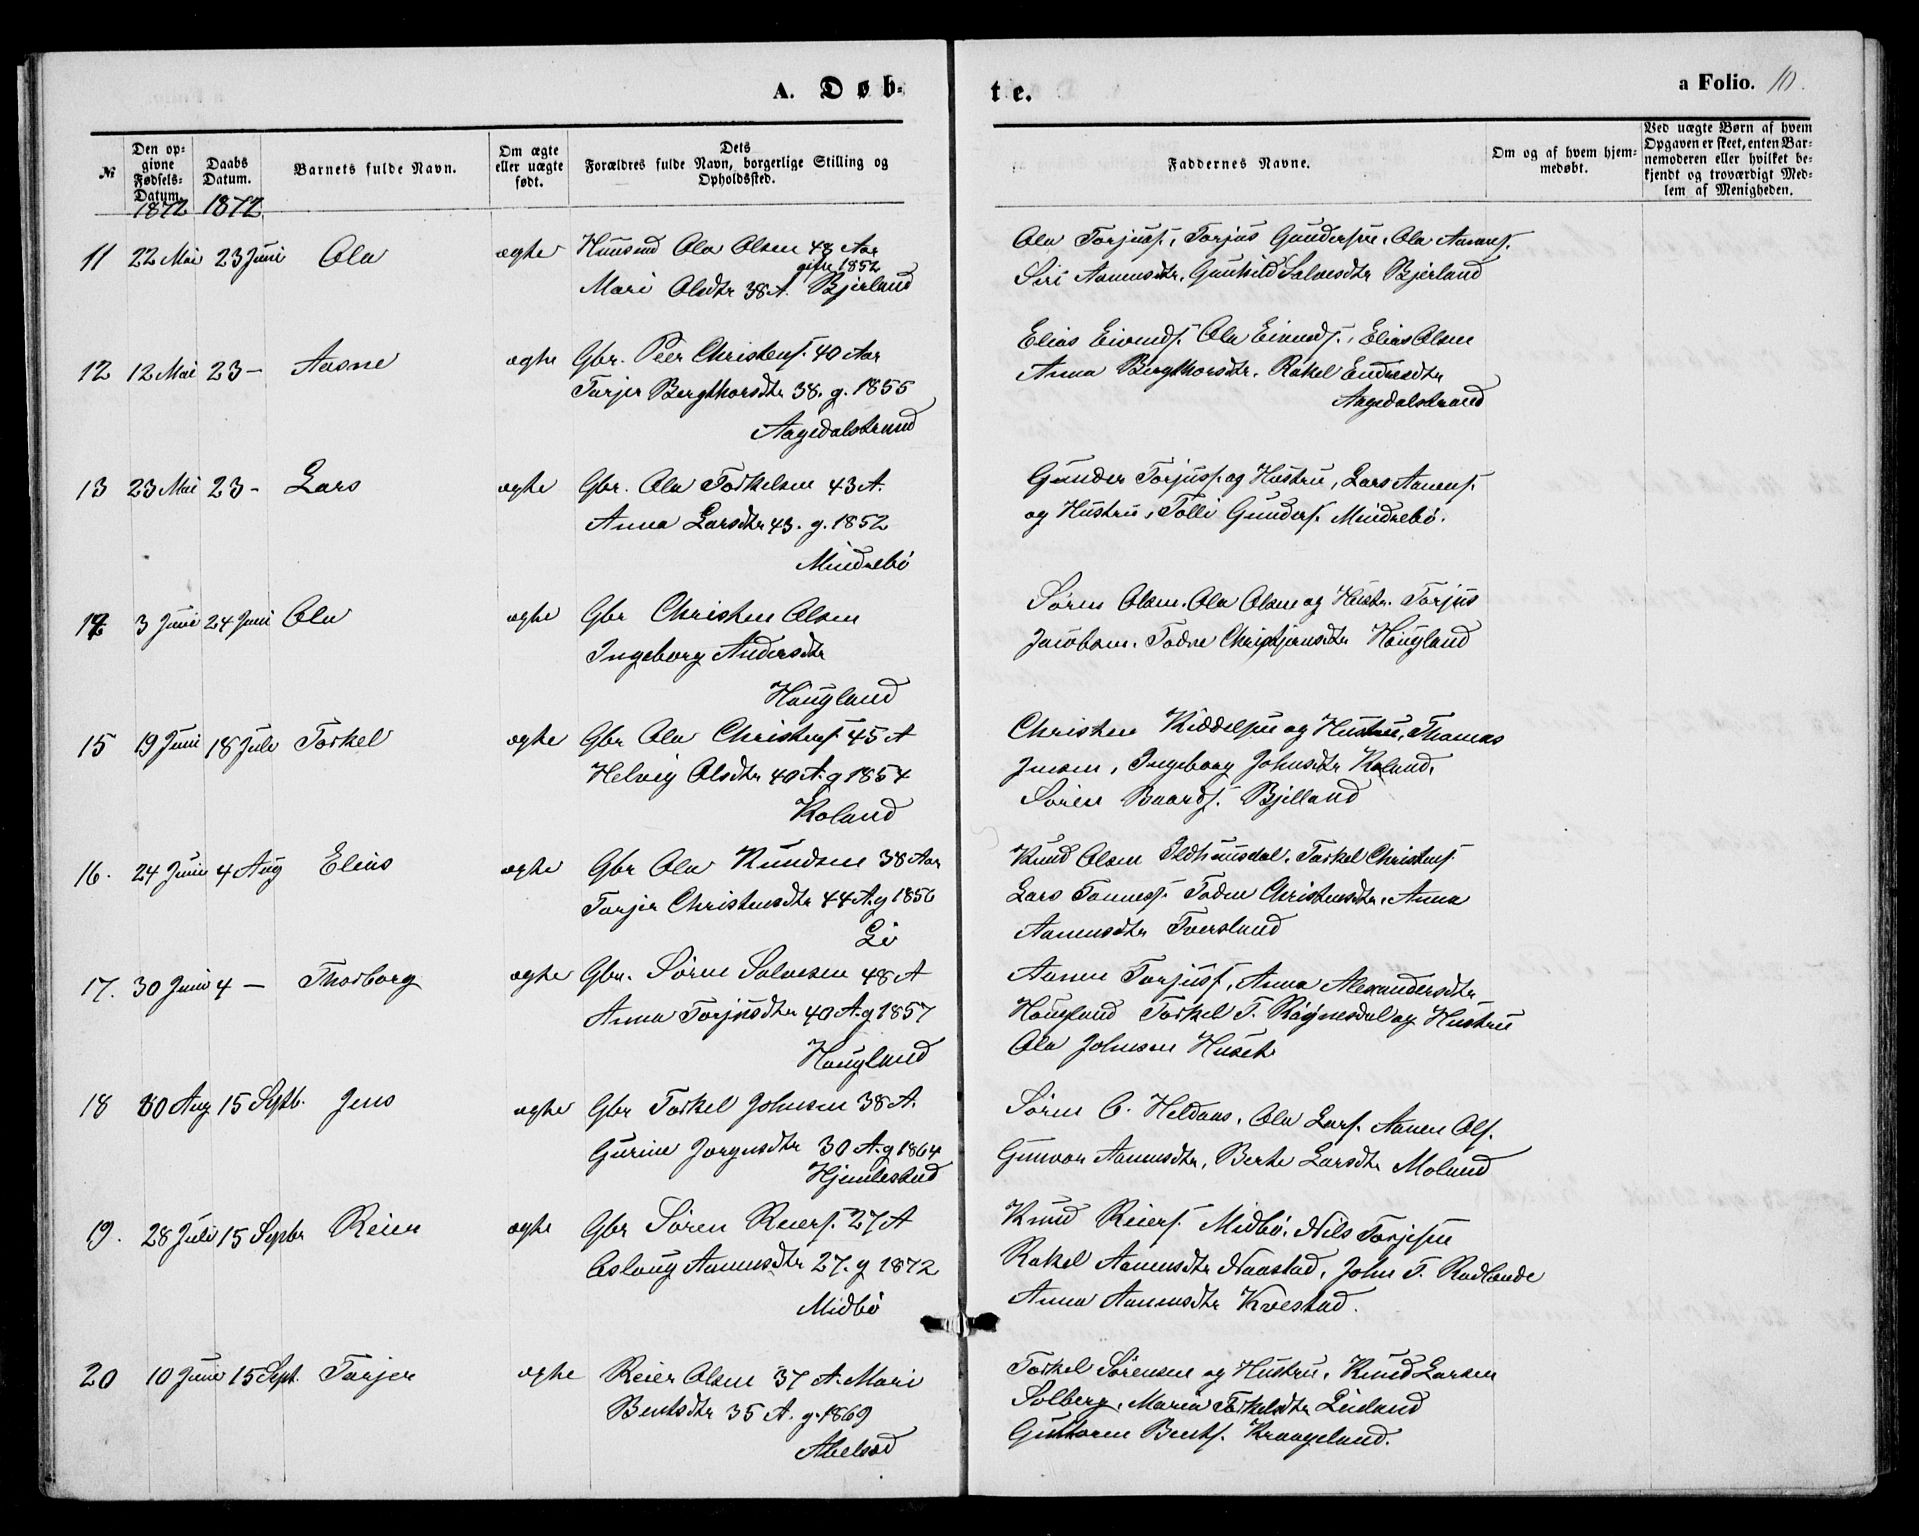 A. Døb-
te.
a Folio. 10.
№
Den opgivne Fødsels-Datum.
Daabs Datum.
Barnets fulde Navn.
Om ægte eller uægte født.
Dets Forældres fulde Navn, borgerlige Stilling og Opholdssted.
Faddernes Navne.
Om og af hvem hjemmedøbt.
Ved uægte Børn af hvem Opgaven er skeet, enten Barnemoderen eller hvilket bekjendt og troværdigt Medlem af Menigheden.
1872 1872
11 22 Mai 23 Juni Ola ægte Huusmd Ola Olsen 48 Aar
gifte 1852
Mari Olsdtr 38 A. Bjerland
Ola Torjusf., Torjus Gundersen, Ola Aanensf.
Siri Aanensdtr, Gunhild Salvesdtr Bjerland
12 12 Mai 23 – Aasne ægte Gbr. Peer Christensf. 40 Aar
Torjer Bergthorsdtr 38. g. 1855
Aagedalstrand
Elias Eivindsf. Ola Eivindsf., Elias Olsen
Anna Bergthorsdtr. Rakel Endresdtr
Aagedalstrand
13 23 Mai 23 – Lars ægte Gbr. Ola Torkelsen 43 A.
Anna Larsdtr 43. g. 1852
Mindrebö
Gunder Torjusf. og Hustru, Lars Aanensf.
og Hustru, Tolli Gundersf. Mindrebö.
14 3 Juni 24 Juni Ola ægte Gbr Christen Olsen
Ingeborg Andersdtr
Hougland
Sören Olsen. Ola Olsen og Hustr. Torjus
Jacobsen. Todne Christensdtr Hougland
15 19 Juni 18 Juli Torkel ægte Gbr Ola Christensf. 45 A
Helvig Olsdtr 40 A. g 1854
Roland
Christen Kiddelsen og Hustru, Thomas
Jensen, Ingeborg Johnsdtr Roland,
Sören Baardsf. Bjelland
16. 24 Juni 4 Aug Elias ægte Gbr Ola Knudsen 38 Aar
Torjer Christensdtr 44 A. g 1856
Li
Knud Olsen Ildhuusdal, Torkel Christensf.
Lars Tonnesf. Todne Christensdtr, Anna
Aanensdtr Tversland
17. 30 Juni 4 – Thorborg ægte Gbr. Sören Salvesen 48 A
Anna Torjusdtr 40 A. g 1857
Hougland
Aanen Torjusf, Anna Alexandersdtr
Hougland Torkel T. Rögnesdal og Hustru
Ola Johnsen Huset
18 30 Aug 15 Septb. Jens ægte Gbr Torkel Johnsen 38 A.
Gurine Jorgensdtr 30 A. g 1864
Hjemlestad
Sören C. Heldaas, Ola Larsf. Aanen Olsf.
Gunvor Aanensdtr, Berte Larsdtr Moland
19. 28 Juli 15 Sepbr Reier ægte Gbr Sören Reiersf. 27 A
Aslaug Aanensdtr 27. g 1872
Midbö
Knud Reiersf. Midbö, Nils Torjesen
Rakel Aanensdtr Naastad, John T. Rødlande
Anna Aanensdtr Kvestad.
20 10 Juni 15 Sept. Torjer ægte Reier Olsen 37 A. Mari
Bentsdtr 35 A. g. 1869
Abelsed
Torkel Sörensen og Hustru, Knud Larsen
Solberg, Maria Torkelsdtr Leiland
Guttorm Bentsf. Kraageland.